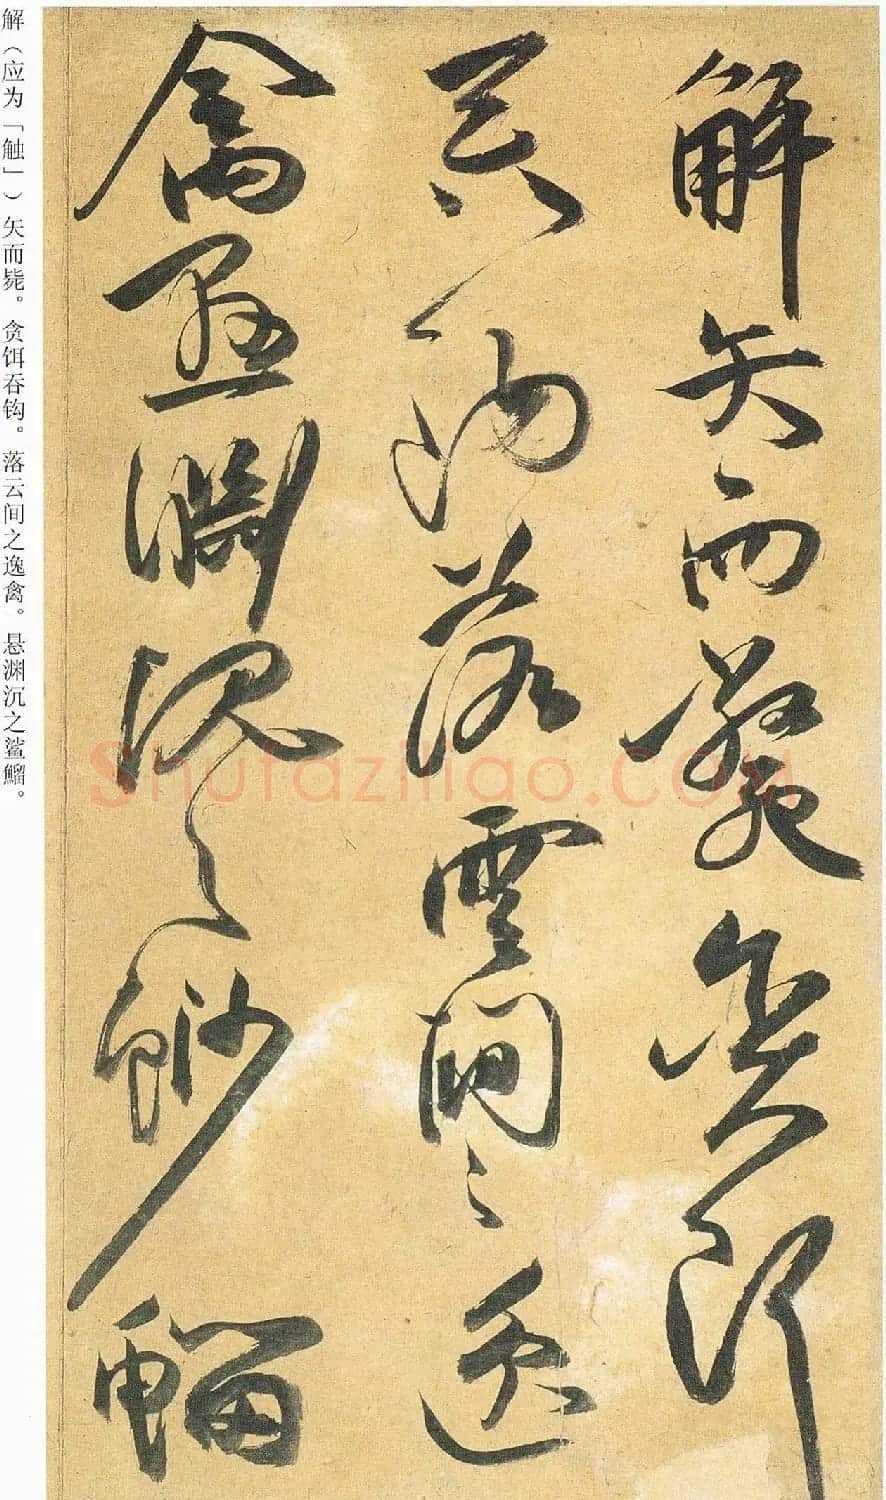 解矢而斃貪餌
吞鈎落雲間之逸
禽懸淵沉之魦鰡
解（应为「触」）矢而毙。贪饵吞钩。落云间之逸禽。悬渊沉之鲨鰡。
Shufaziliao.com